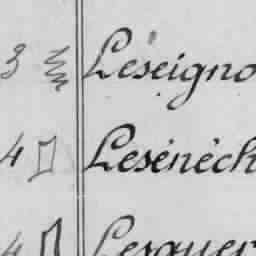 3 Leseigno
4 Lesénéch
4 Lesquer